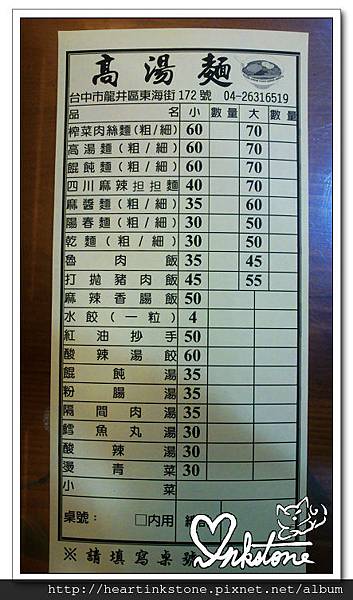 高湯麵
台中市龍井區東海街172號 04-26316519
品名 小 數量 大 數量
榨菜肉絲麵(粗/細) 60 70
高湯麵(粗/細) 60 70
餛飩麵(粗/細) 60 70
四川麻辣担担麵 40 70
麻醬麵(粗/細) 35 60
陽春麵(粗/細) 30 50
乾麵(粗/細) 30 50
魯肉飯 35 45
打拋豬肉飯 45 55
麻辣香腸飯 50
水餃(一粒) 4
紅油抄手 50
酸辣湯餃 60
餛飩湯 35
粉腸湯 35
隔間肉湯 35
鱈魚丸湯 30
酸辣湯 30
燙青菜 30
小菜
桌號: □內用
※請填寫桌號
Inkstone
http://heartinkstone.pixnet.net/album